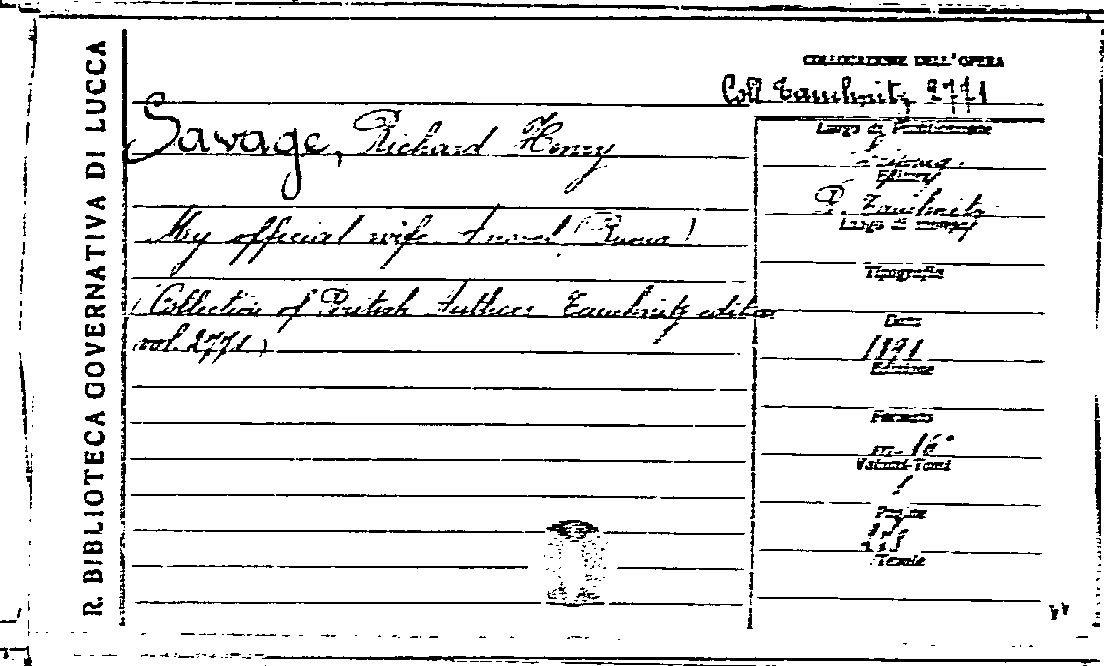 R. BIBLIOTECA GOVERNATIVA DI LUCCA
COLLOCAZIONE DELL'OPERA
Coll. Tauchnitz 2771
Savage, Richard Henry
My official wife. A novel.
(Collection of British Authors Tauchnitz edition
vol. 2771)
Luogo di Pubblicazione
Editore
B. Tauchnitz
Luogo di stampa
Tipografia
Data
1891
Edizione
Formato
in-16°
Volumi-Tomi
1
Pagine
Tavole